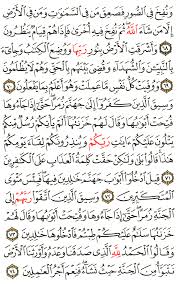 وَنُفِخَ فِي الصُّورِ فَصَعِقَ مَن فِي السَّمَاوَاتِ وَمَن فِي الْأَرْضِ
إِلَّا مَن شَاءَ اللَّهُ ثُمَّ نُفِخَ فِيهِ أُخْرَىٰ فَإِذَا هُمْ قِيَامٌ يَنظُرُونَ
٦٨ وَأَشْرَقَتِ الْأَرْضُ بِنُورِ رَبِّهَا وَوُضِعَ الْكِتَابُ وَجِيءَ
بِالنَّبِيِّينَ وَالشُّهَدَاءِ وَقُضِيَ بَيْنَهُم بِالْحَقِّ وَهُمْ لَا يُظْلَمُونَ
٦٩ وَوُفِّيَتْ كُلُّ نَفْسٍ مَّا عَمِلَتْ وَهُوَ أَعْلَمُ بِمَا يَفْعَلُونَ
٧٠ وَسِيقَ الَّذِينَ كَفَرُوا إِلَىٰ جَهَنَّمَ زُمَرًا حَتَّىٰ إِذَا جَاءُوهَا
فُتِحَتْ أَبْوَابُهَا وَقَالَ لَهُمْ خَزَنَتُهَا أَلَمْ يَأْتِكُمْ رُسُلٌ مِّنكُمْ
يَتْلُونَ عَلَيْكُمْ آيَاتِ رَبِّكُمْ وَيُنذِرُونَكُمْ لِقَاءَ يَوْمِكُمْ
هَٰذَا قَالُوا بَلَىٰ وَلَٰكِنْ حَقَّتْ كَلِمَةُ الْعَذَابِ عَلَى الْكَافِرِينَ
٧١ قِيلَ ادْخُلُوا أَبْوَابَ جَهَنَّمَ خَالِدِينَ فِيهَا فَبِئْسَ مَثْوَى
الْمُتَكَبِّرِينَ ٧٢ وَسِيقَ الَّذِينَ اتَّقَوْا رَبَّهُمْ إِلَى
الْجَنَّةِ زُمَرًا حَتَّىٰ إِذَا جَاءُوهَا وَفُتِحَتْ أَبْوَابُهَا وَقَالَ لَهُمْ
خَزَنَتُهَا سَلَامٌ عَلَيْكُمْ طِبْتُمْ فَادْخُلُوهَا خَالِدِينَ ٧٣
وَقَالُوا الْحَمْدُ لِلَّهِ الَّذِي صَدَقَنَا وَعْدَهُ وَأَوْرَثَنَا الْأَرْضَ
نَتَبَوَّأُ مِنَ الْجَنَّةِ حَيْثُ نَشَاءُ فَنِعْمَ أَجْرُ الْعَامِلِينَ ٧٤